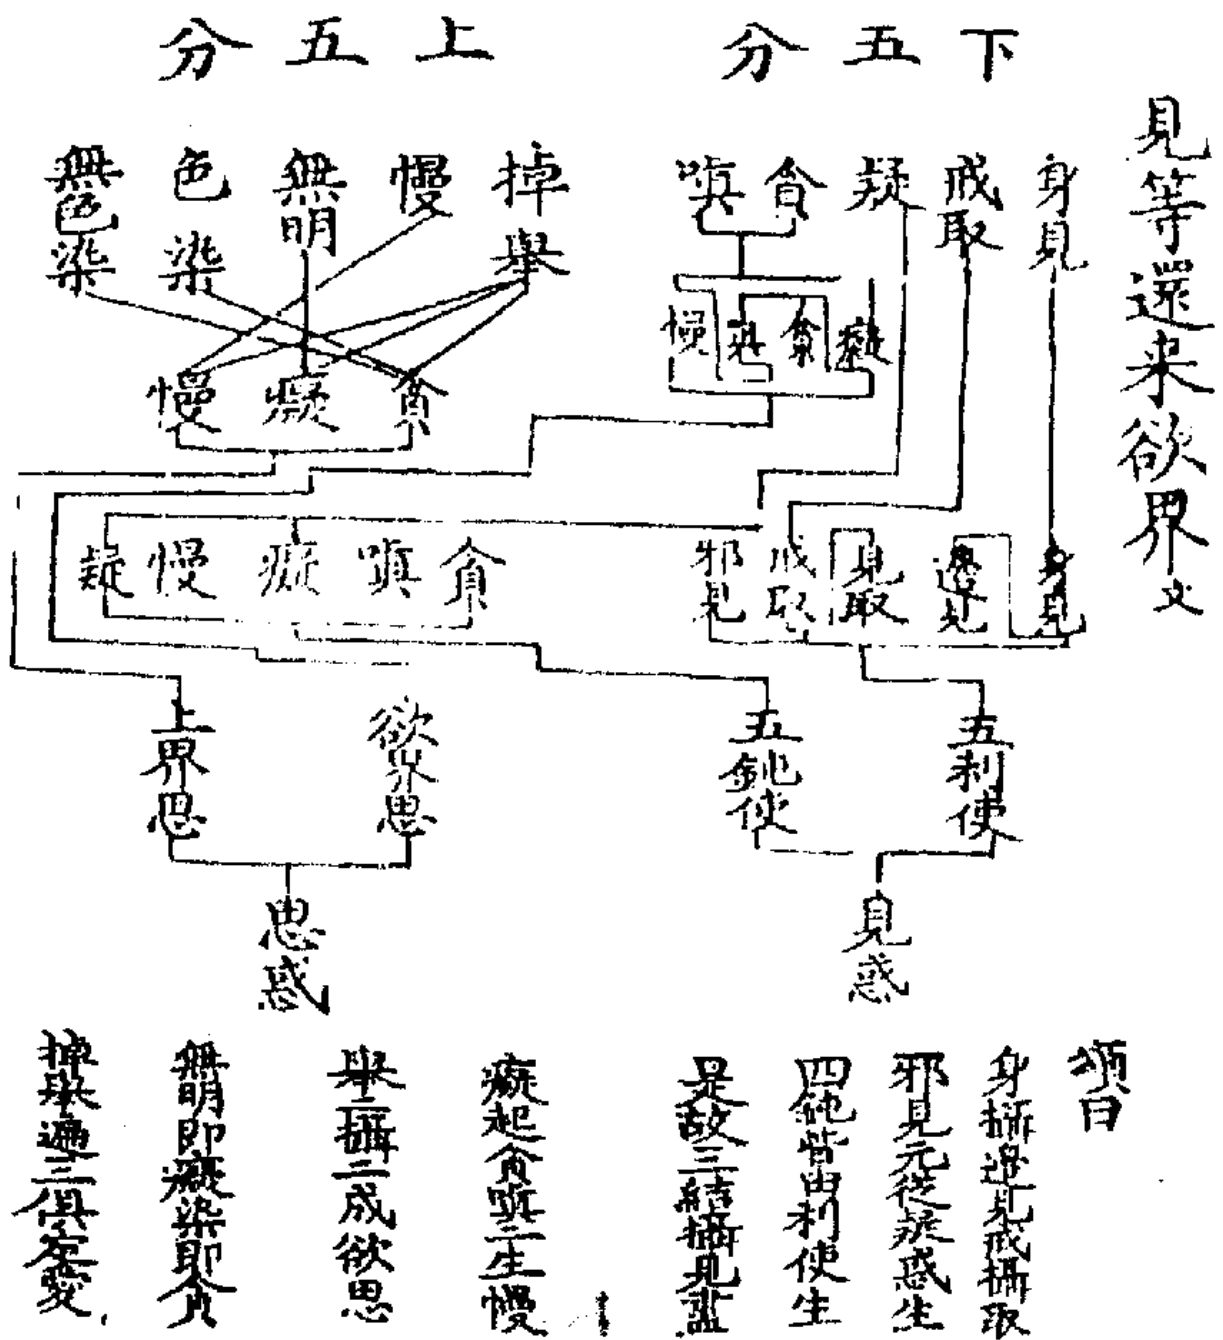 見等還来欲界文
下五分
身見
戒取
疑
貪
嗔
癡
貪
嗔
慢
身見
邊見
見取
戒取
邪見
五利使
五鈍使
見惑
上五分
掉舉
慢
無明
色染
無色染
貪
癡
慢
貪
嗔
癡
慢
疑
欲界思
上界思
思惑
頌曰
身攝邊見戒攝取
邪見元從疑惑生
四鈍皆由利使生
是故三結攝見盡
癡起貪嗔二生慢
舉二攝二成欲思
無明即癡染即貪
掉舉遍三俱